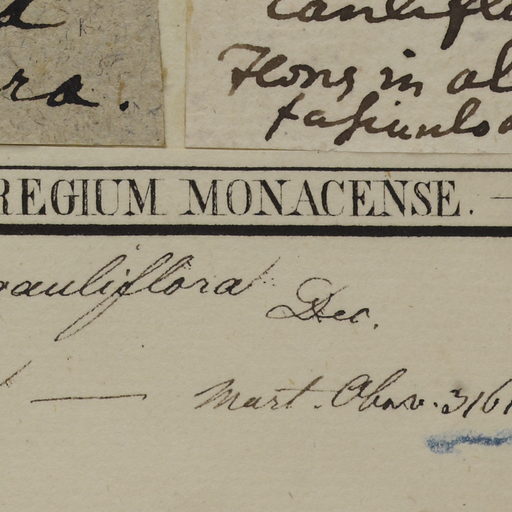 ra.
cauliflo
Flores in al
fasciculo
REGIUM MONACENSE. —
cauliflora Dec.
— Mart. Obsv. 3161